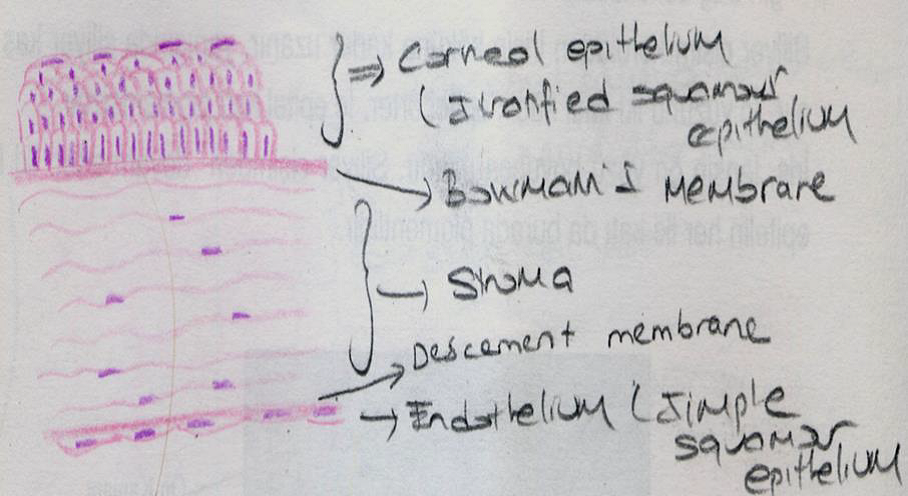 Corneal epithelium
(stratified squamous
epithelium
Bowman's membrane
Stroma
Descement membrane
Endothelium (simple
squamous
epithelium